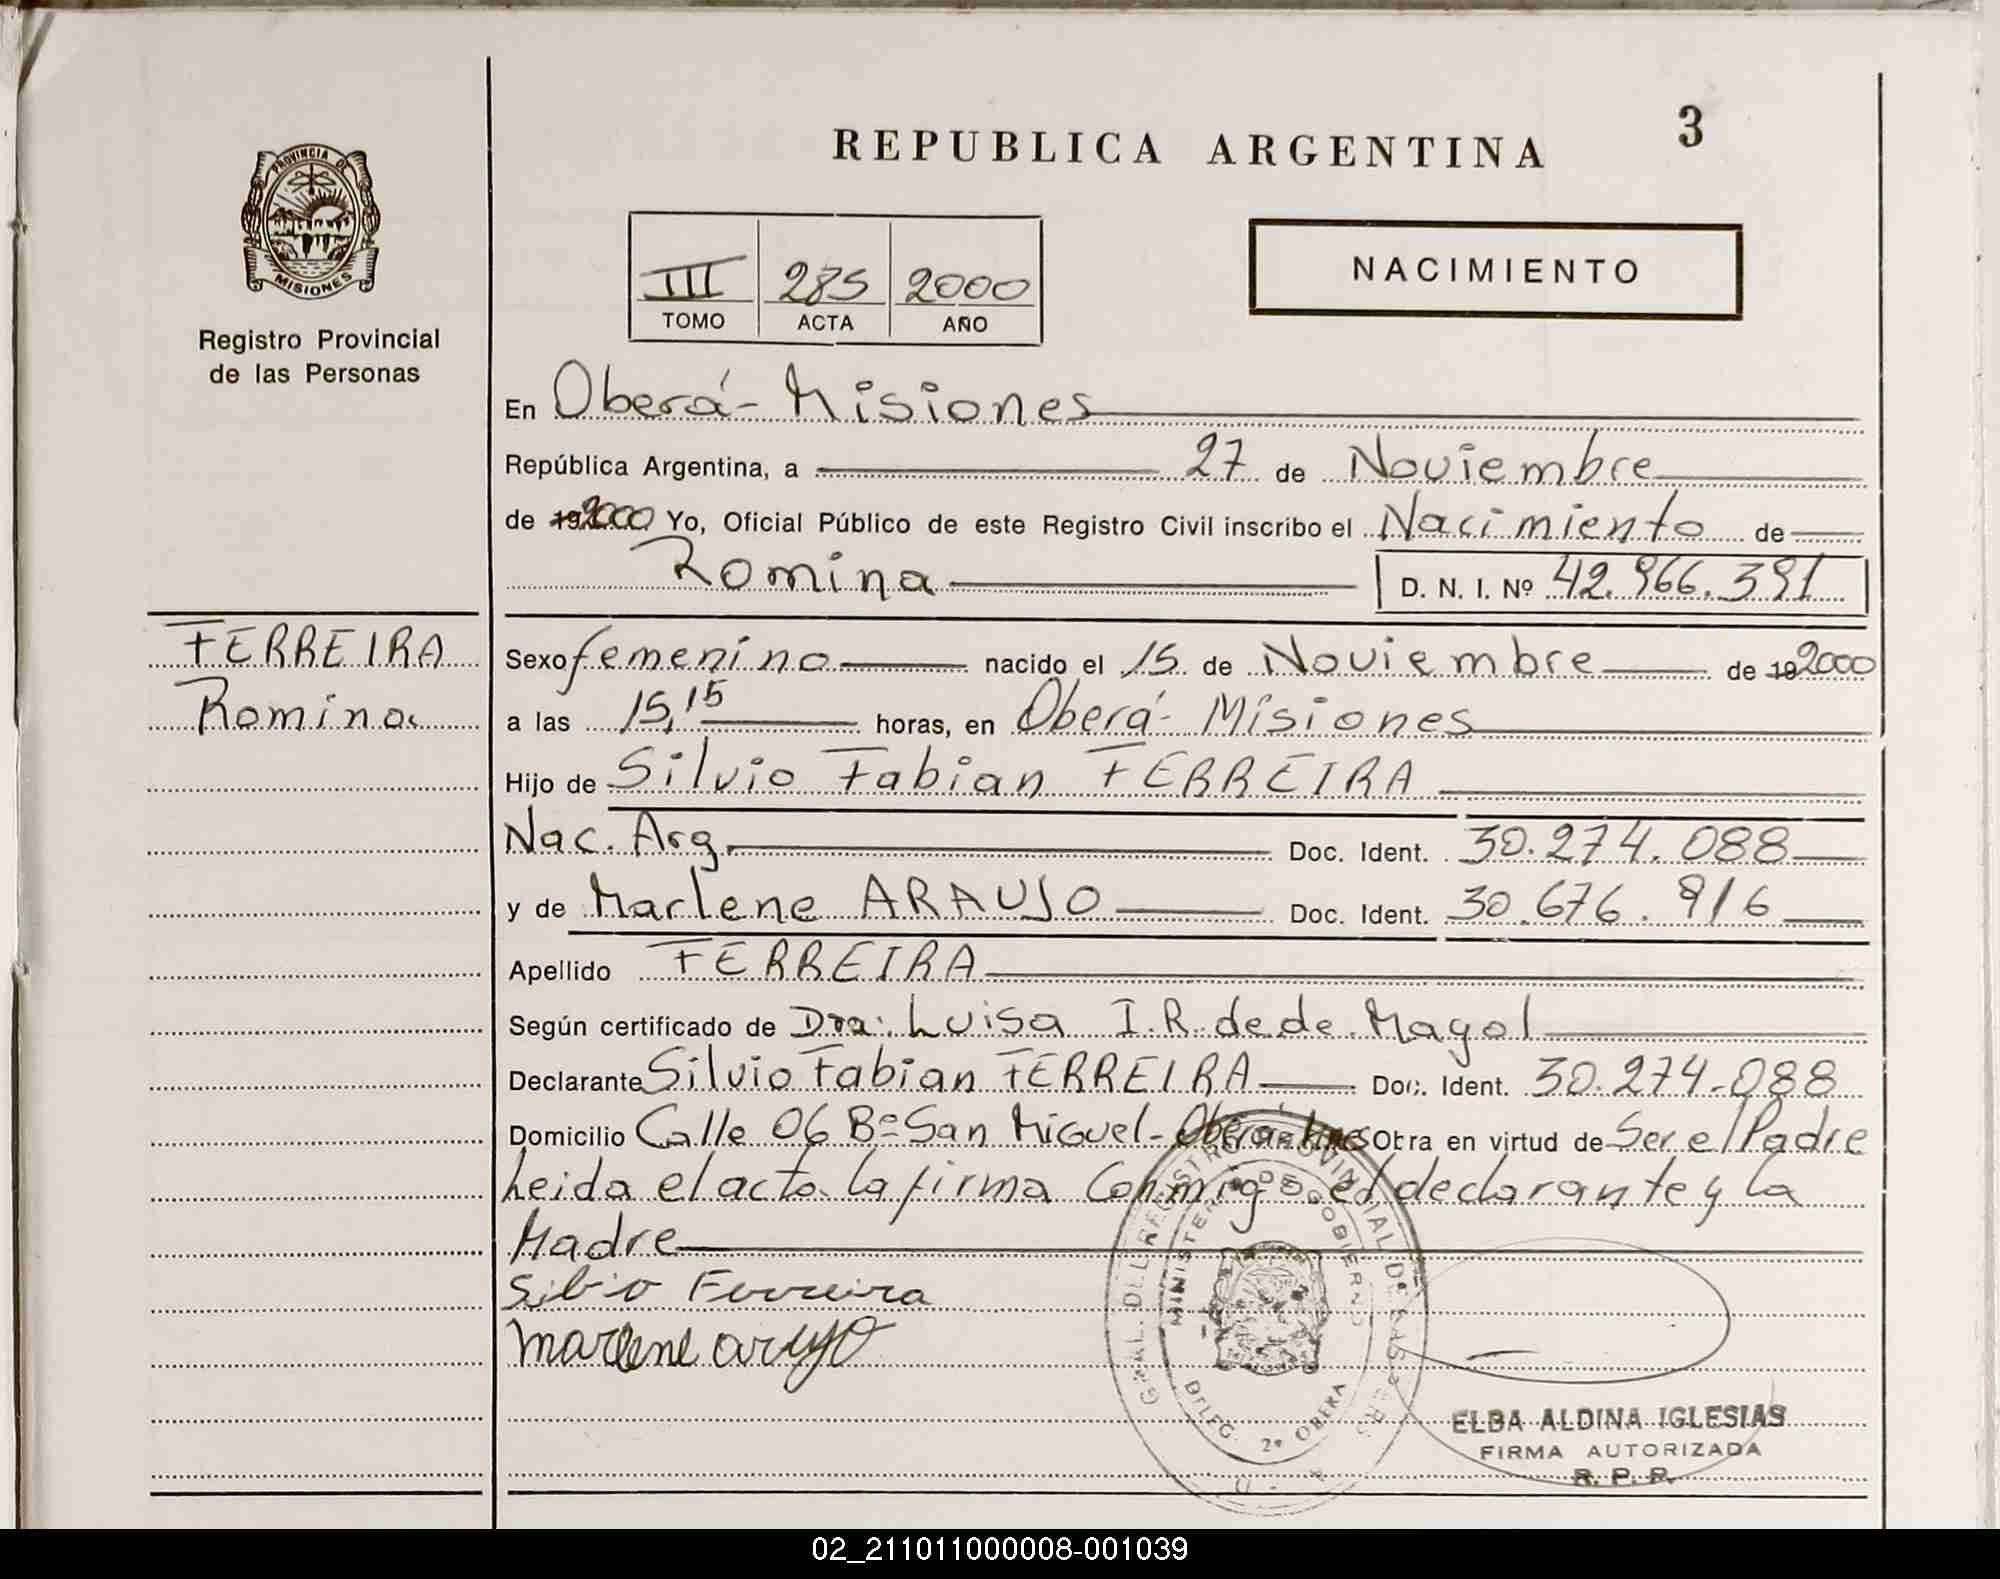 3
REPUBLICA ARGENTINA
PROVINCIA DE
MISIONES
Registro Provincial
de las Personas
III 285 2000
TOMO ACTA AÑO
NACIMIENTO
En Oberá - Misiones
República Argentina, a 27 de Noviembre
de 192000 Yo, Oficial Público de este Registro Civil inscribo el Nacimiento de
Romina D. N. I. Nº 42.966.391
FERREIRA
Romina
Sexo femenino nacido el 15 de Noviembre de 192000
a las 15,15 horas, en Oberá - Misiones
Hijo de Silvio Fabian FERREIRA
Nac. Arg. Doc. Ident. 30.274.088
y de Marlene ARAUJO Doc. Ident. 30.676.916
Apellido FERREIRA
Según certificado de Dra: Luisa I.R. de de Magol
Declarante Silvio Fabian FERREIRA Doc. Ident. 30.274.088
Domicilio Calle 06 Bº San Miguel - Oberá - Mnes Obra en virtud de Ser el Padre
Leida el acta la firma Conmigo el declarante y la
Madre
Silbio Ferreira
marlene araujo
GRAL. DEL REGISTRO PROVINCIAL DE LAS PERS
MINISTERIO DE GOBIERNO
DELEG. 2ª OBERA
ELBA ALDINA IGLESIAS
FIRMA AUTORIZADA
R. P. P.
02_211011000008-001039